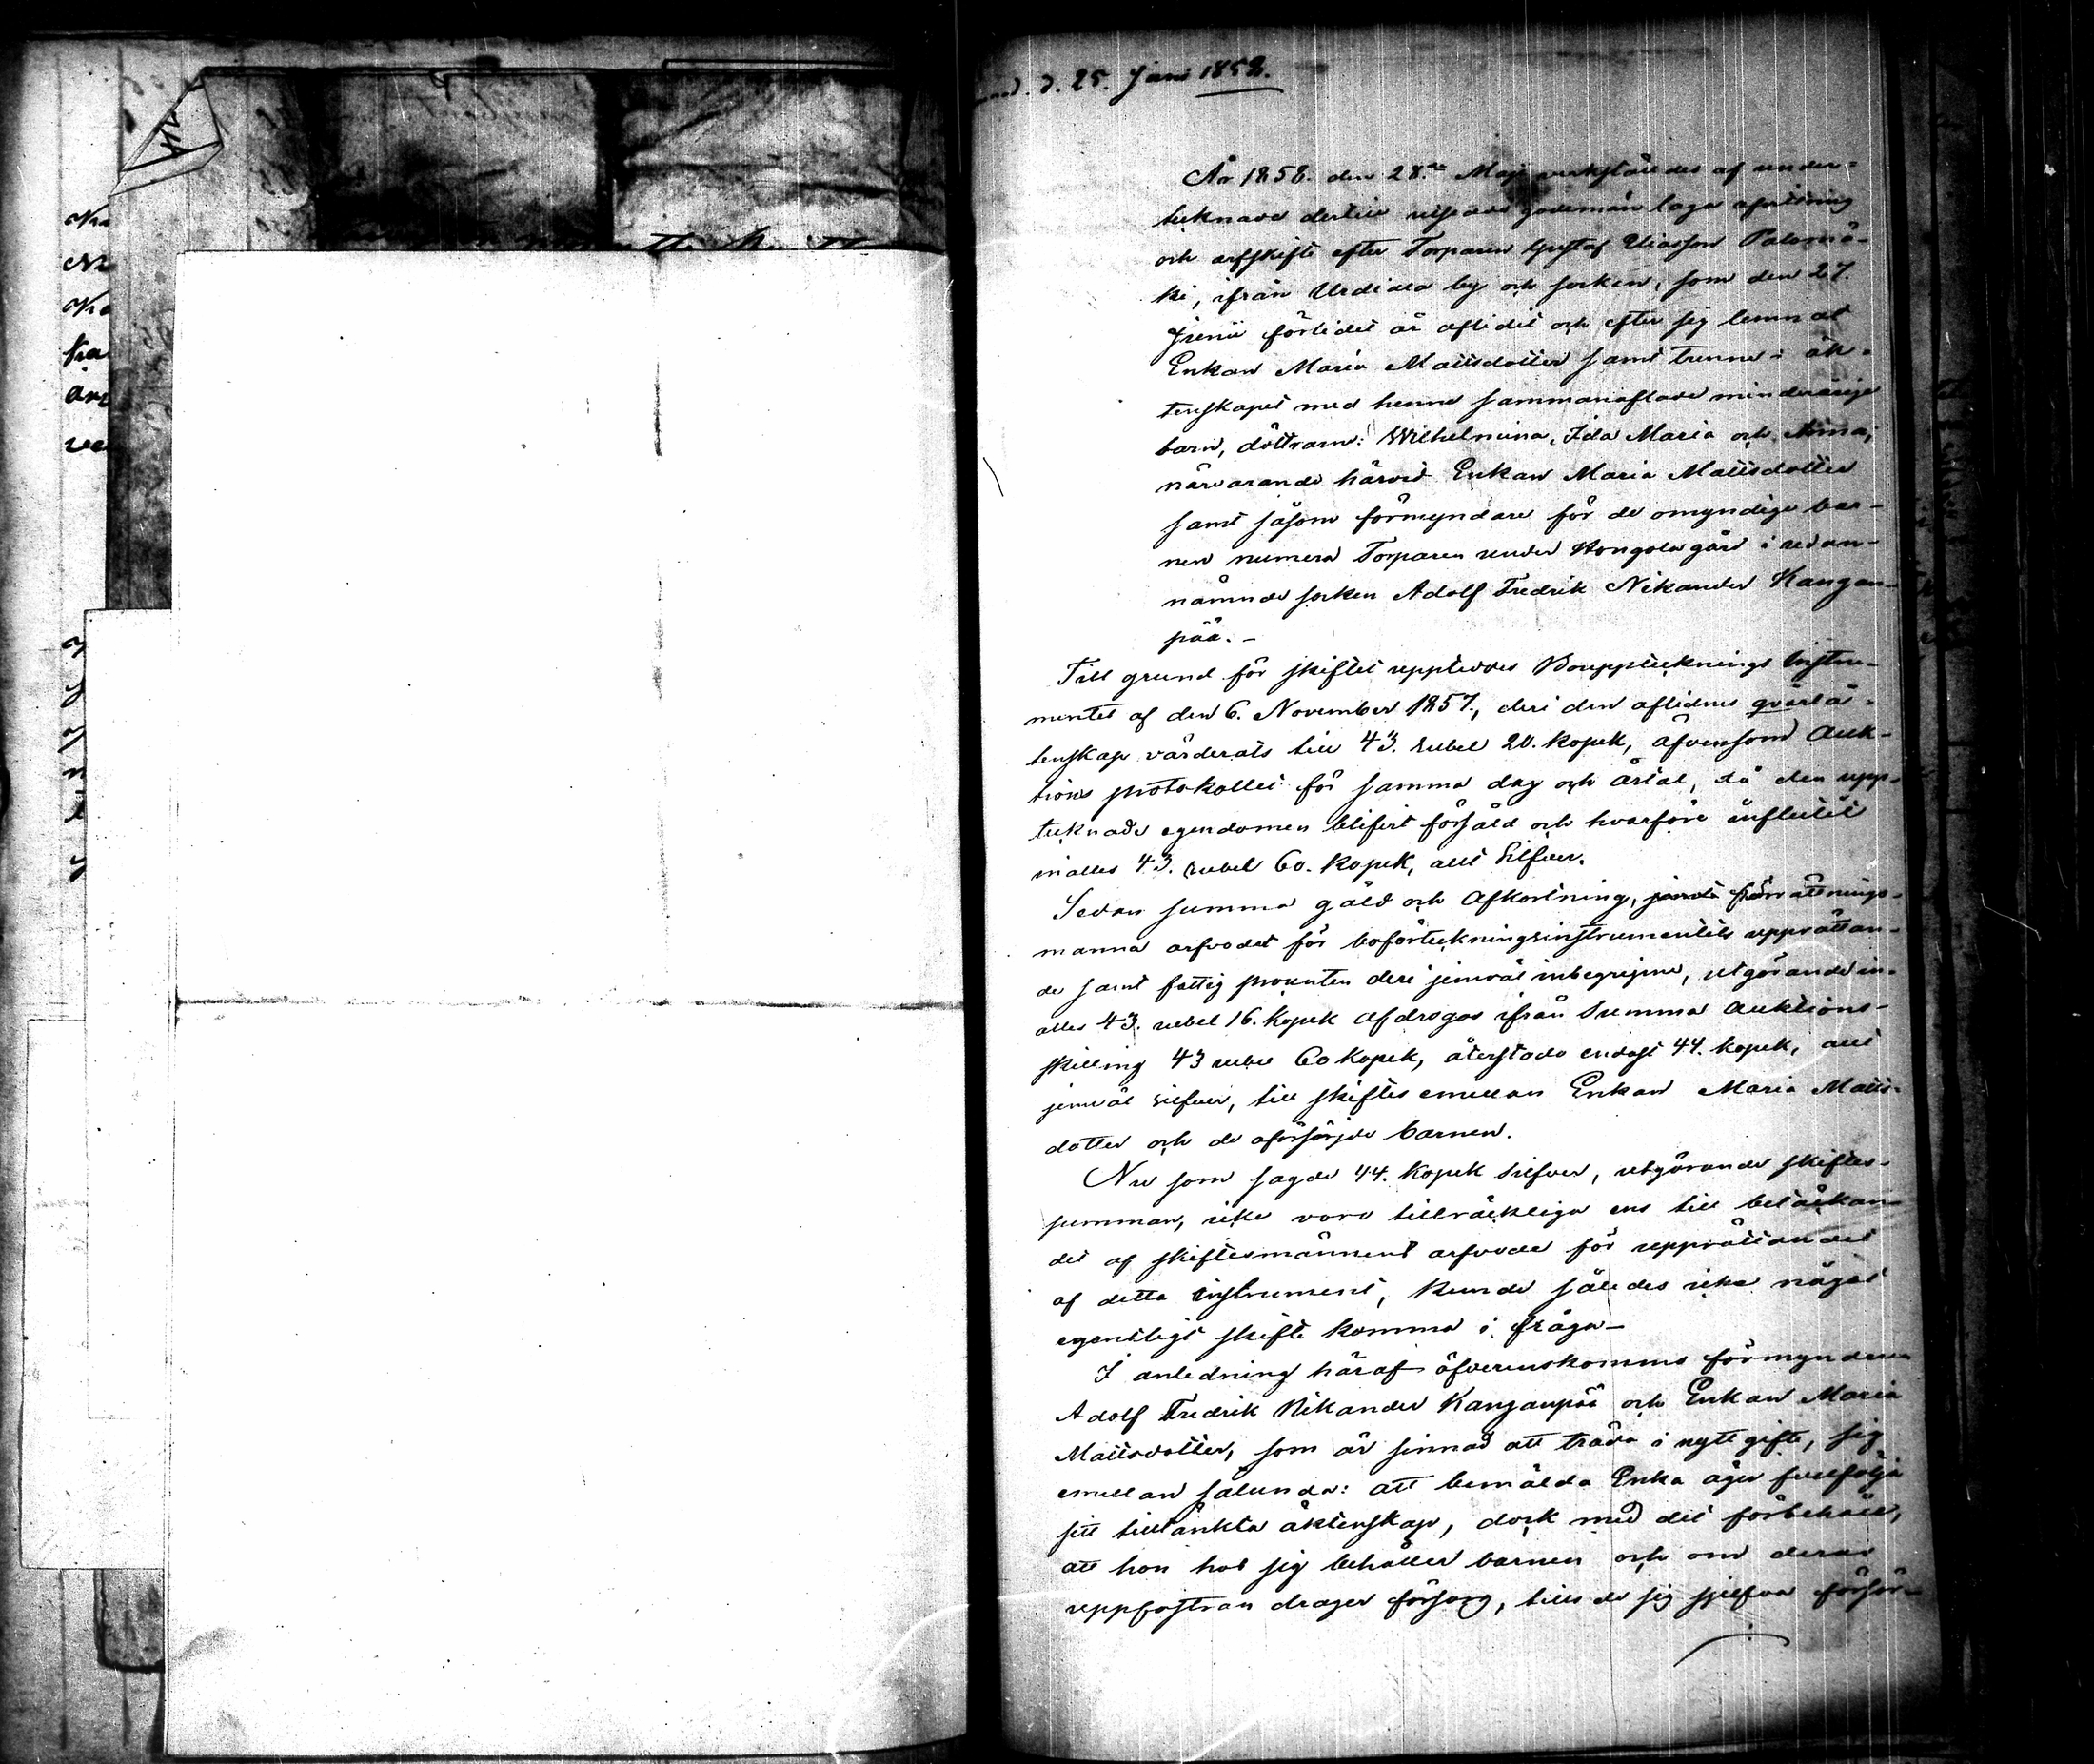 d. 25. Juni 1858.
År 1858. den 28.de Maji verkstäldes af under-
tecknade dertill utsedde godemän laga afvittring
och arfskifte efter Torparen Gustaf Eliasson Palomä-
ki, ifrån Urdiala by och socken, som den 27.
Junii förlidet år aflidit och efter sig lemnat
Enkan Maria Mattsdotter samt trenne i äk-
tenskapet med henne sammanaflade minderårige
barn, döttrarne: Wilhelmina, Ida Maria och Anna;
närvarande härvid Enkan Maria Mattsdotter
samt såsom förmyndare för de omyndige bar-
nen numera Torparen under Hongola gård i redan-
nämnde socken Adolf Fredrik Nikander Kangan-
pää. -
Till grund för skiftet uppteddes Boupptecknings Instru-
mentet af den 6. November 1857., deri den aflidnes qvarlå-
tenskap värderats till 43. rubel 20. kopek, äfvensom Auk-
tions protokollet för samma dag och årtal, då den upp-
tecknade egendomen blifvit försåld och hvarföre influtit
inalles 43. rubel 60. kopek, allt Silfver.
Sedan summa gäld och Afkortning, jemte förrättnings-
manna arfvodet för boförteckningsinstrumentets upprättan-
de samt fattig procenten deri jemväl inbegripne, utgörande in-
alles 43. rubel 16. kopek afdragos ifrån Summa Auktions-
skilling 43 rubel 60 kopek, återstodo endast 44. kopek, allt
jemväl silfver, till skiftes emellan Enkan Maria Matts-
dotter och de oförsörjde barnen.
Nu som sagde 44. kopek silfver, utgörande skiftes-
summan, icke voro tillräckliga ens till betäckan-
det af skiftesmännens arfvode för upprättandet
af detta Instrument, kunde således icke något
egentligt skifte komma i fråga -
I anledning häraf öfverenskommo förmyndaren
Adolf Fredrik Nikander Kanganpää och Enkan Maria
Mattsdotter, som är sinnad att träda i nytt gifte, sig
emellan sålunda: att bemälda Enka äger fullfölja
sitt tilltänkta äktenskap, dock med det förbehåll,
att hon hos sig behåller barnen och om deras
uppfostran drager försorg, tills de sig sjelfva försör-